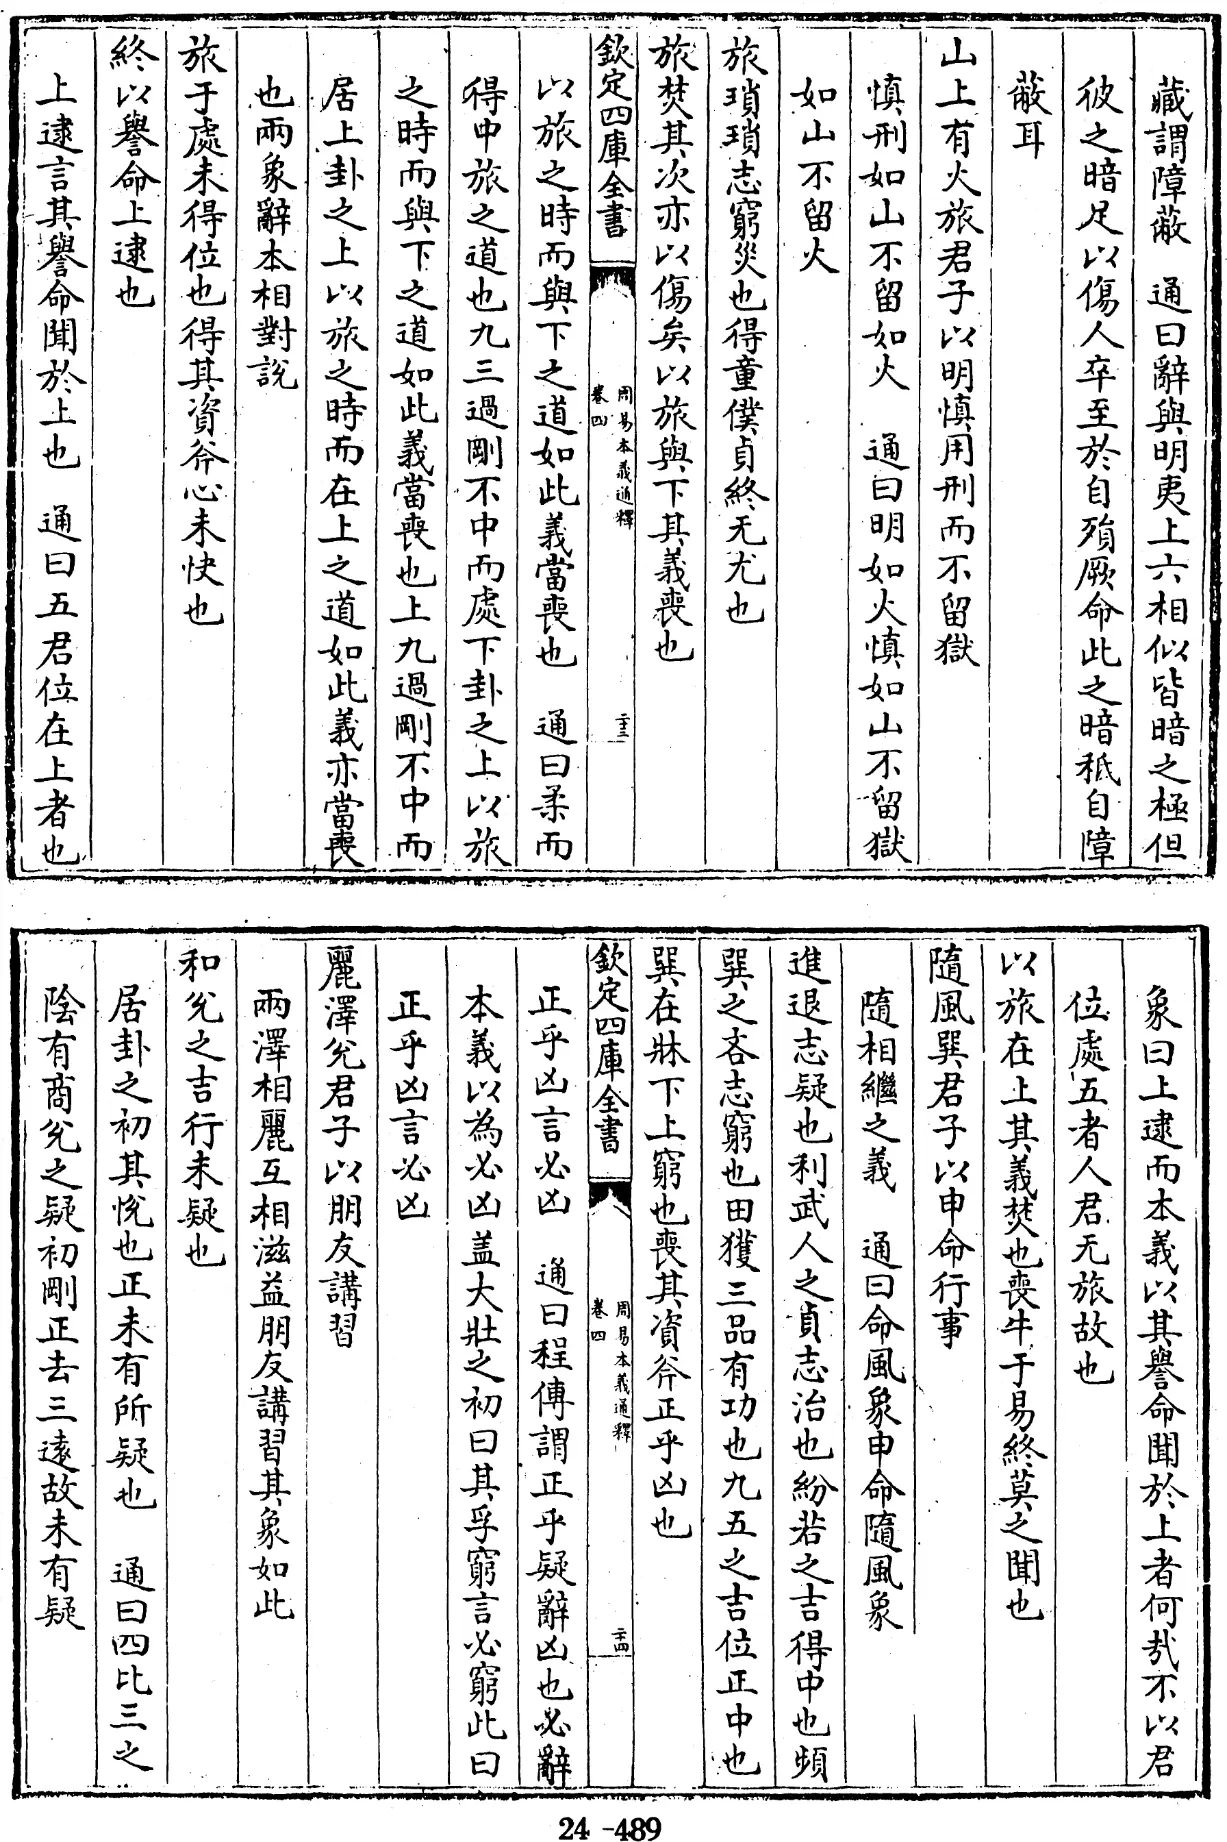 藏謂障蔽　通曰辭與明夷上六相似皆暗之極但
彼之暗足以傷人卒至於自殞厥命此之暗秪自障
蔽耳
山上有火旅君子以明慎用刑而不留獄
慎刑如山不留如火　通曰明如火慎如山不留獄
如山不留火
旅瑣瑣志窮災也得童僕貞終无尤也
旅焚其次亦以傷矣以旅與下其義喪也
欽定四庫全書
周易本義通釋
卷四
二十三
以旅之時而與下之道如此義當喪也　通曰柔而
得中旅之道也九三過剛不中而處下卦之上以旅
之時而與下之道如此義當喪也上九過剛不中而
居上卦之上以旅之時而在上之道如此義亦當喪
也兩象辭本相對說
旅于處未得位也得其資斧心未快也
終以譽命上逮也
上逮言其譽命聞於上也　通曰五君位在上者也
象曰上逮而本義以其譽命聞於上者何哉不以君
位處五者人君无旅故也
以旅在上其義焚也喪牛于易終莫之聞也
隨風巽君子以申命行事
隨相繼之義　通曰命風象申命隨風象
進退志疑也利武人之貞志治也紛若之吉得中也頻
巽之吝志窮也田獲三品有功也九五之吉位正中也
巽在牀下上窮也喪其資斧正乎凶也
欽定四庫全書
周易本義通釋
卷四
二十四
正乎凶言必凶　通曰程傳謂正乎疑辭凶也必辭
本義以為必凶蓋大壯之初曰其孚窮言必窮此曰
正乎凶言必凶
麗澤兌君子以朋友講習
兩澤相麗互相滋益朋友講習其象如此
和兌之吉行未疑也
居卦之初其悅也正未有所疑也　通曰四比三之
陰有商兌之疑初剛正去三遠故未有疑
24-489